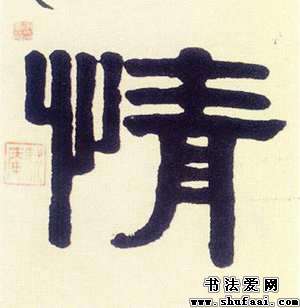 情
书法爱网
www.shufaai.com